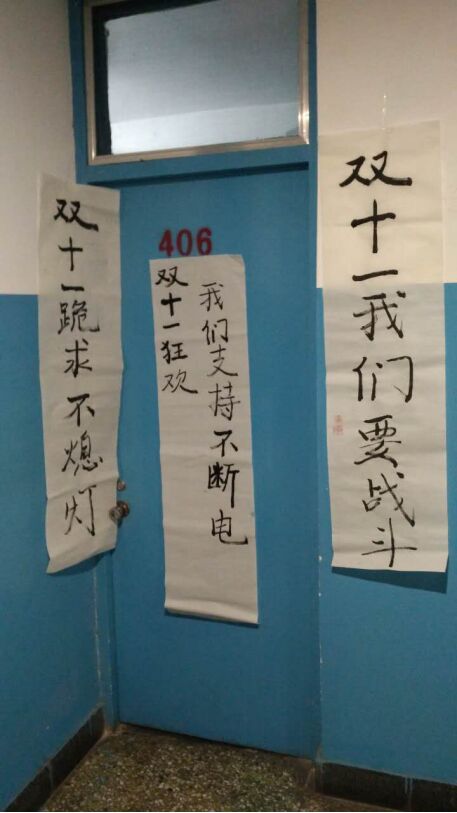 406
双十一我们要战斗
双十一跪求不熄灯
双十一狂欢
我们支持不断电